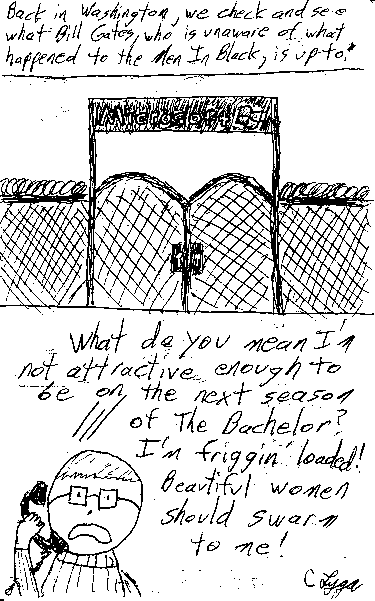 Back in Washington, we check and see
what Bill Gates, who is unaware of what
happened to the Men In Black, is up to.*
Microsoft
What do you mean I'm
not attractive enough to
be on the next season
of The Bachelor?
I'm friggin' loaded!
Beautiful women
should swarm
to me!
C Lyga